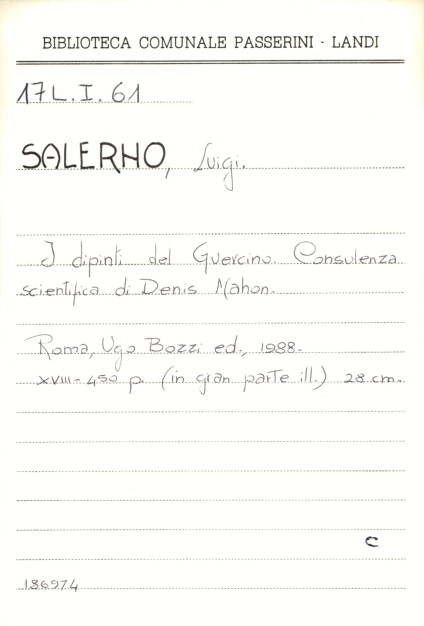 BIBLIOTECA COMUNALE PASSERINI - LANDI
17 L. I. 61
SALERNO, Luigi.
I dipinti del Guercino. Consulenza
scientifica di Denis Mahon.
Roma, Ugo Bozzi ed., 1988.
XVIII - 450 p. (in gran parte ill.) 28 cm.
C
186974